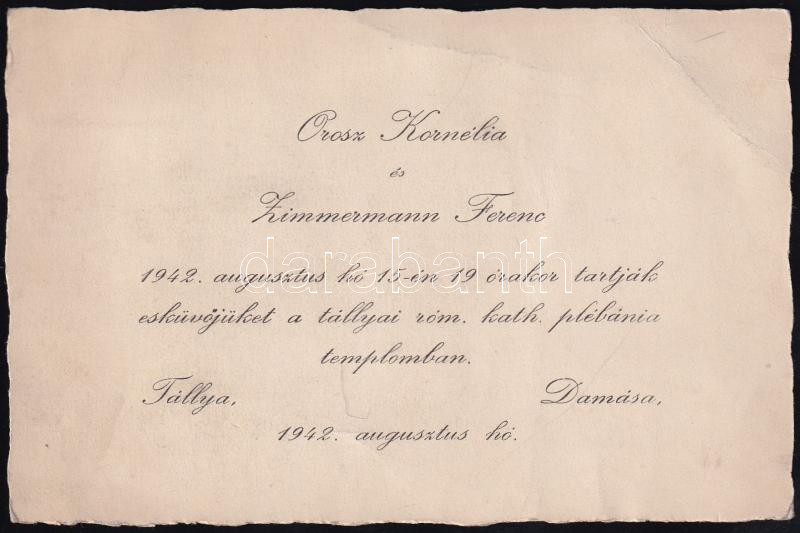 Orosz Kornélia
és
Zimmermann Ferenc
darabanth
1942. augusztus hó 15-én 19 órakor tartják
esküvőjüket a tállyai róm. kath. plébánia
templomban.
Tállya, Damása,
1942. augusztus hó.